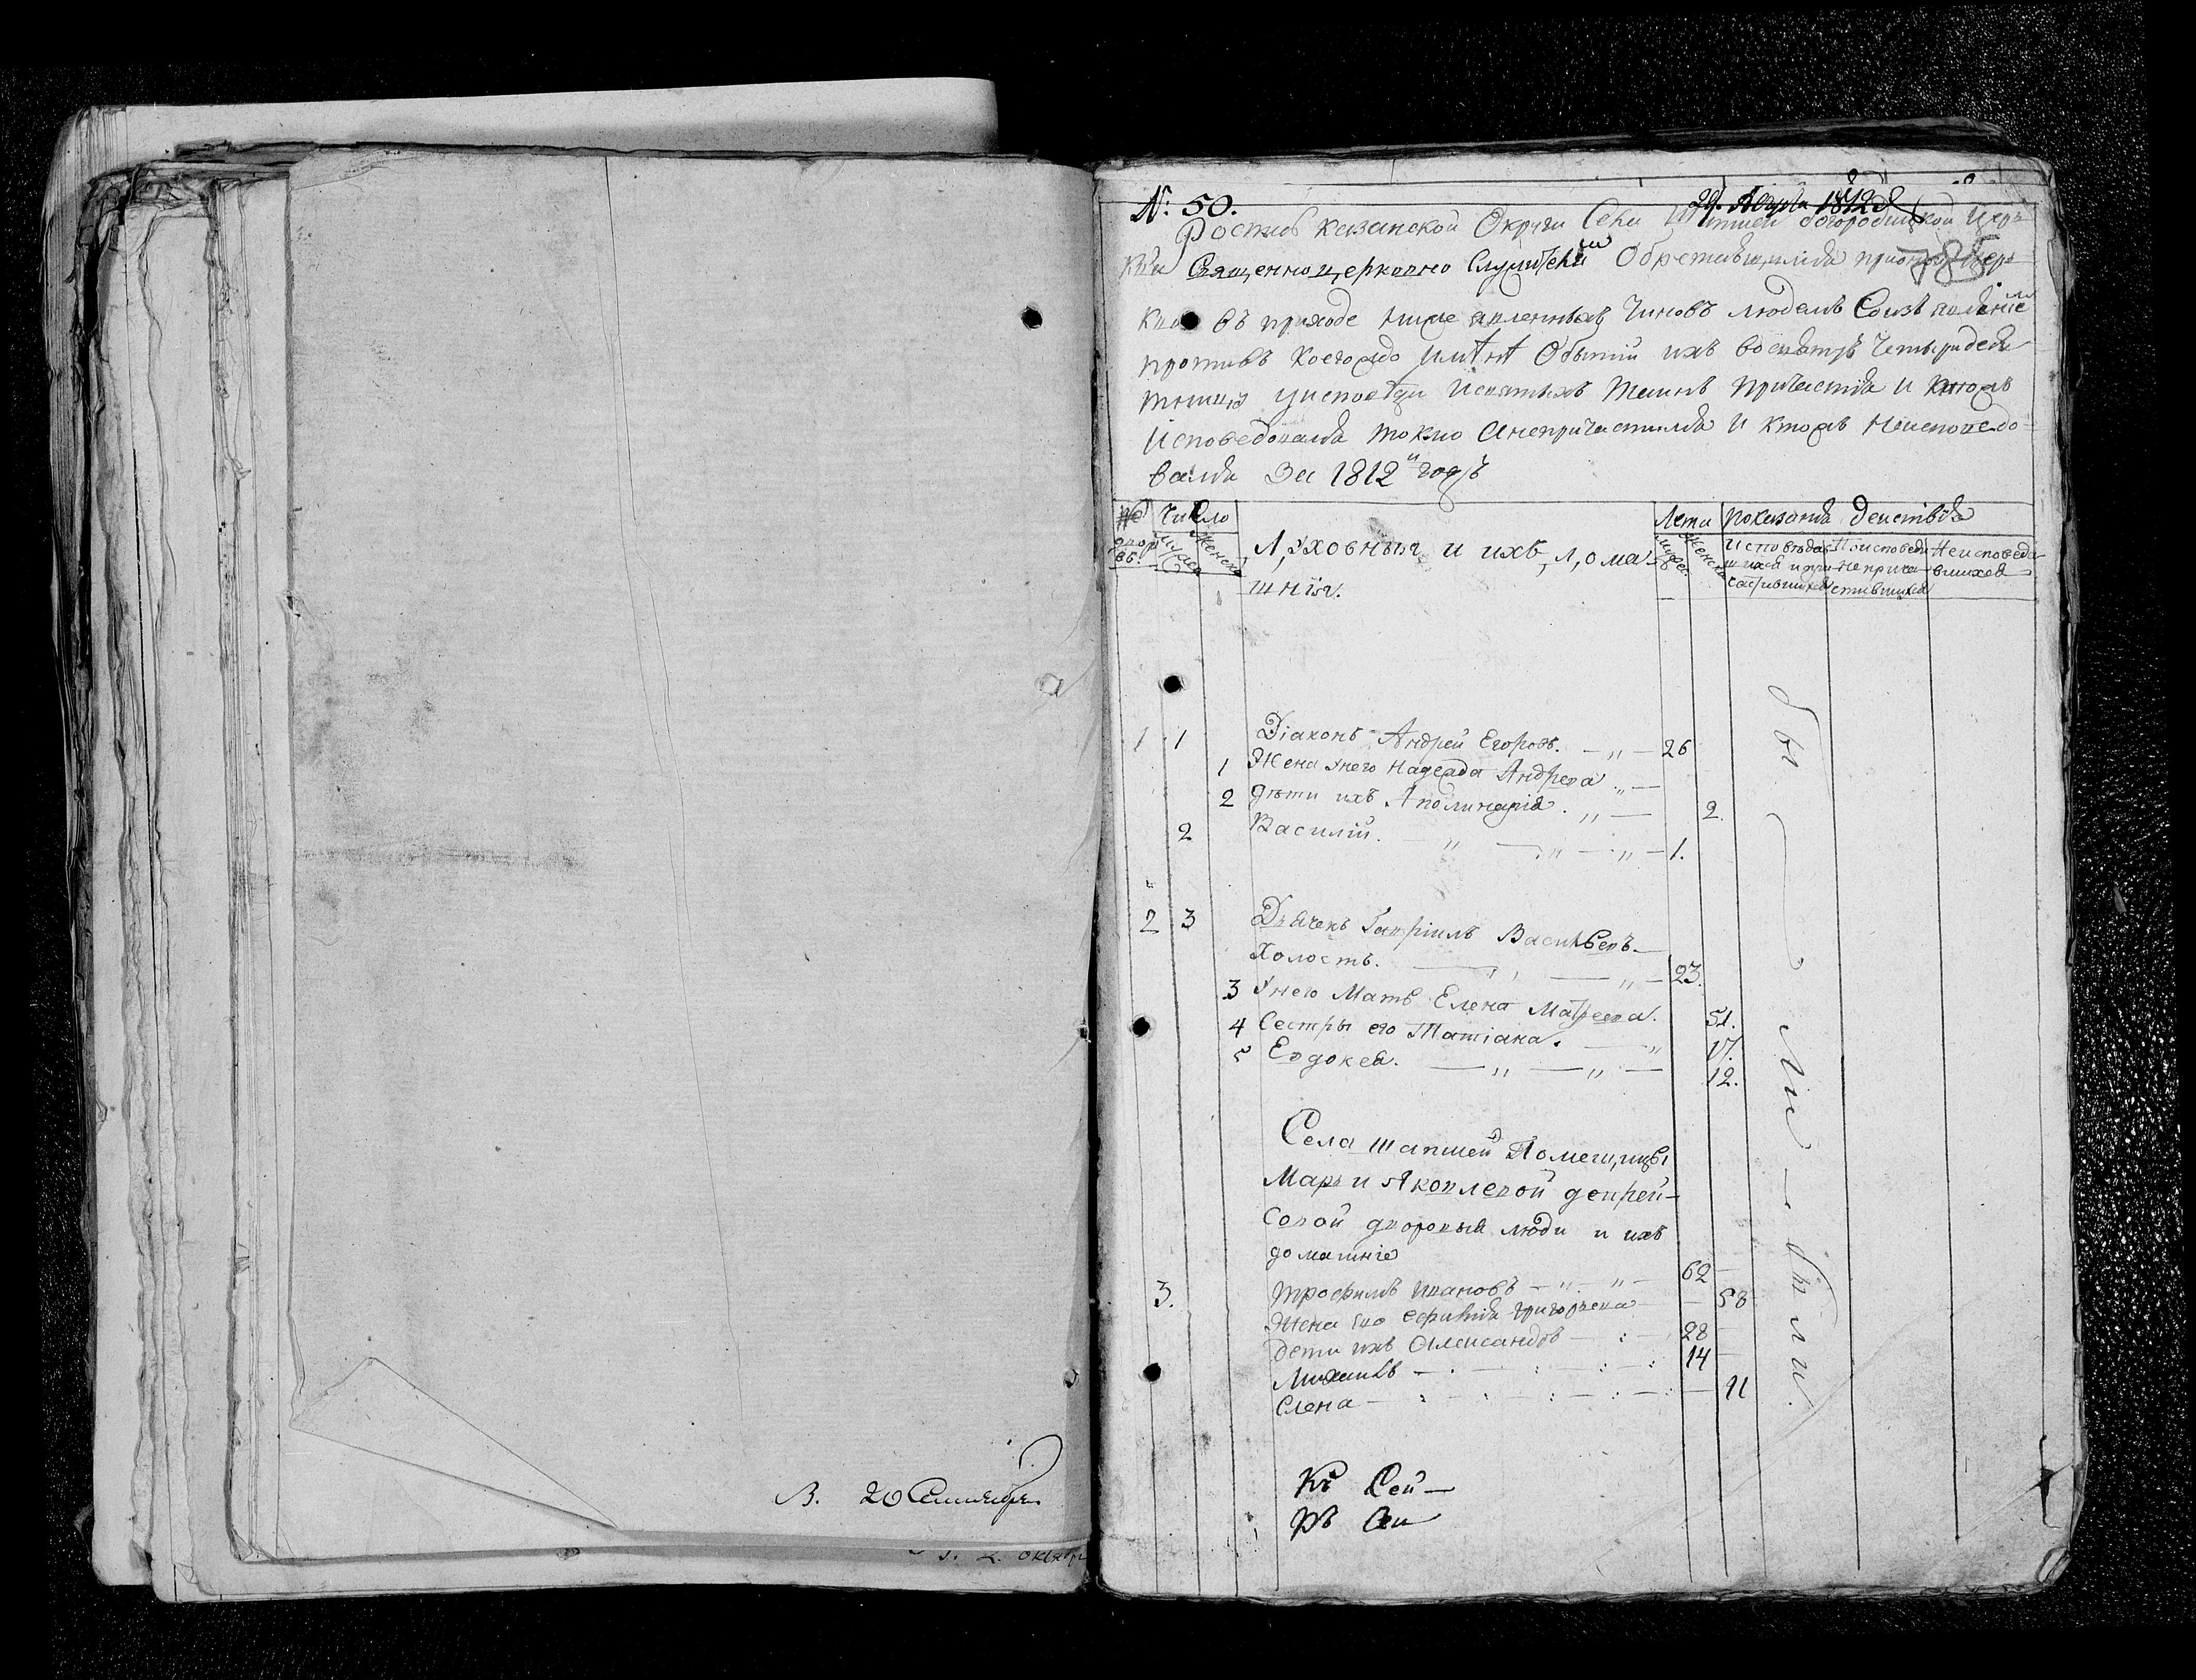 В. 20 Сентября
2. октяр
№: 50.
29. Августа 1812
Роспись Казанской Округи Села Шапшей богородицкой Цер
кви Священно церковно Служители Обретающимся при оной цер
785
кви въ приходе ниже явленныхъ Чиновъ людемъ Соизъявление
противъ Коегождо имѣнѣ О бытии ихъ во святую Четыридеся
тницу у исповѣди и святыхъ Таинъ Причастия и ктожъ
Исповедовался токмо А не причастился И ктожъ Неисповедо=
вался За 1812 й годъ
Число
Лета
показания действия
дворовъ
мужеска
женска
Духовныя и ихъ дома-
шнїя.
мужеск
женска
Исповѣдав
шихся и при
частившихся
Исповеда
не прича
стившихся
Неисповеда
вшихся
1 1 Dїаконъ Андрей Егоровъ. 26
1 Жена У него Надежда Андреева
2 дѣти ихъ Аполинарїя. 2
2 Василїй. 1.
2 3 Дьячекъ Гаврїилъ Васильевъ
Холостъ. 23.
3 У него Мать Елена Матфеева. 51.
4 Сестры его Татїана. 17.
5 Евдокея. 12.
Села шапшей Помещицы
Марьи Яковлевой
дворовыя люди и ихъ
домашнїе
3. трофимъ ивановъ 62
Жена его Ефимїя григорьева 58
дети ихъ Александръ 28
Михаилъ 14
Елена 11
бы ли были.
Къ Сей
Ан